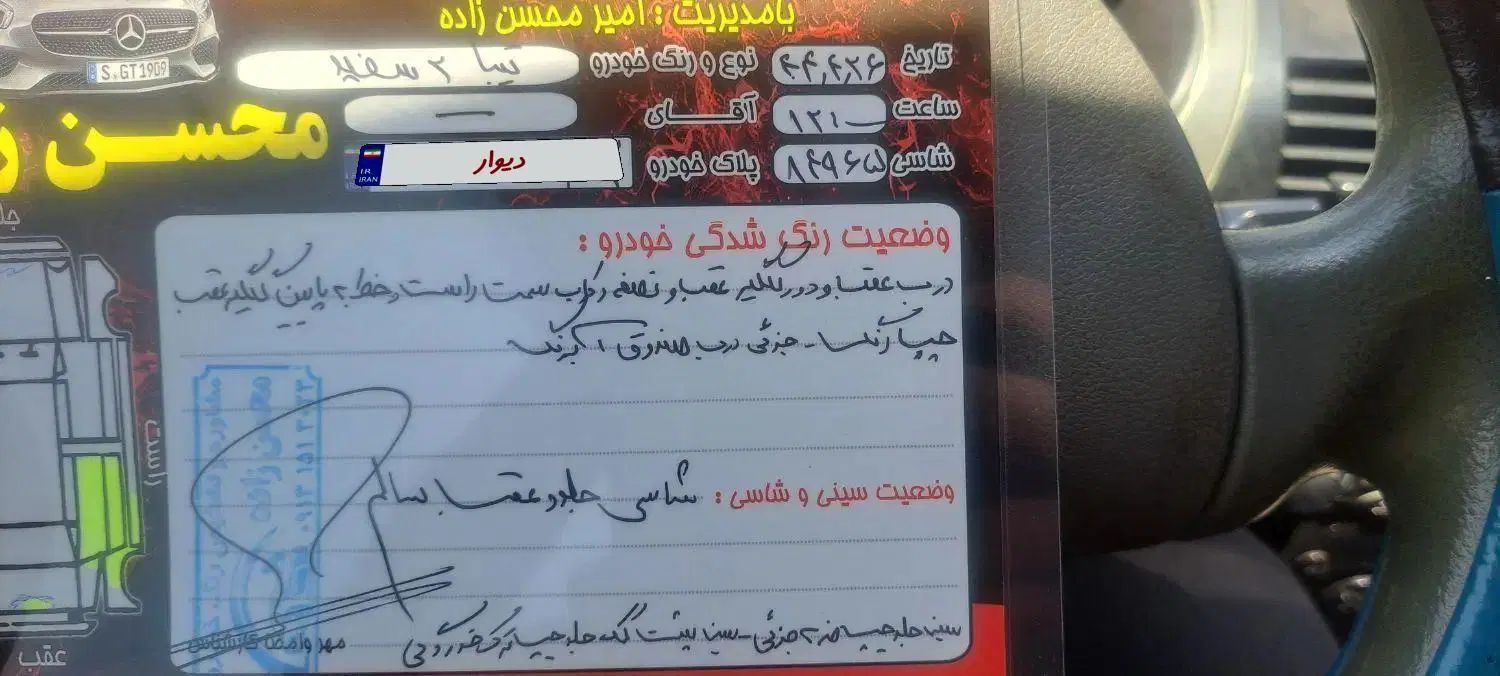 بامدیریت : امیر محسن زاده
تاریخ ۴۰۴,۴,۲۶ نوع و رنگ خودرو تیبا ۲ سفید
ساعت ۱۲:۰۰ آقـــای —
شاسی ۸۴۹۶۷۵ پلاک خودرو دیوار
I.R.
IRAN
S GT 1909
محسن ز
وضعیت رنگ شدگی خودرو :
درب عقب و دور گلگیر عقب و نصفه رکاب سمت راست و خط ۲ پایین گلگیر عقب
چپ رنگ - جزئی درب صندوق آبرنگ
وضعیت سینی و شاسی : شاسی جلو و عقب سالم
سینی جلو چپ ضربه جزئی - سینی پشت لنگ جلو چپ ترک خوردگی
مهر وامضا کارشناس
راست
عقب
محسن زاده